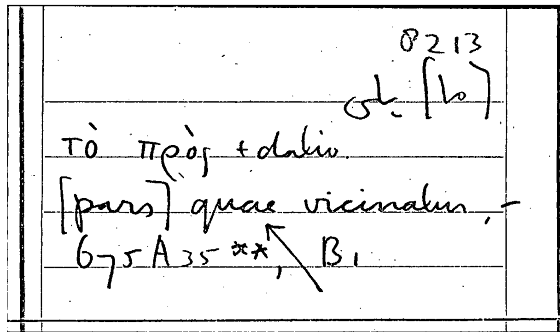 8213
τὸ πρὸς + dativ.
[pars] quae vicinatur, –
675A35**, B1